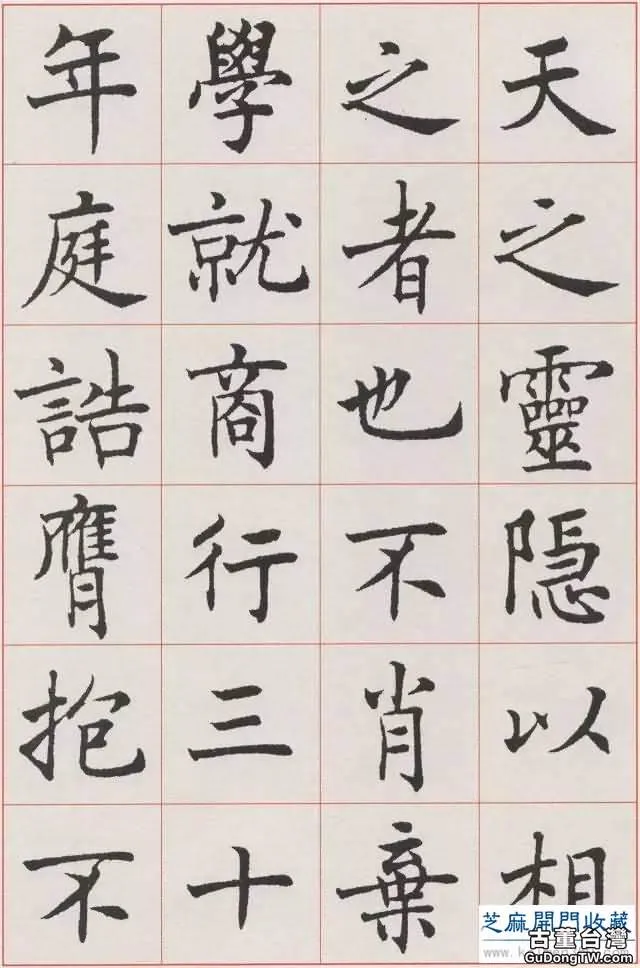 天之靈隐以相
之者也不肖棄
學就商行三十
年庭誥膺抱不
芝麻開門收藏
古董台灣
GuDongTW.com